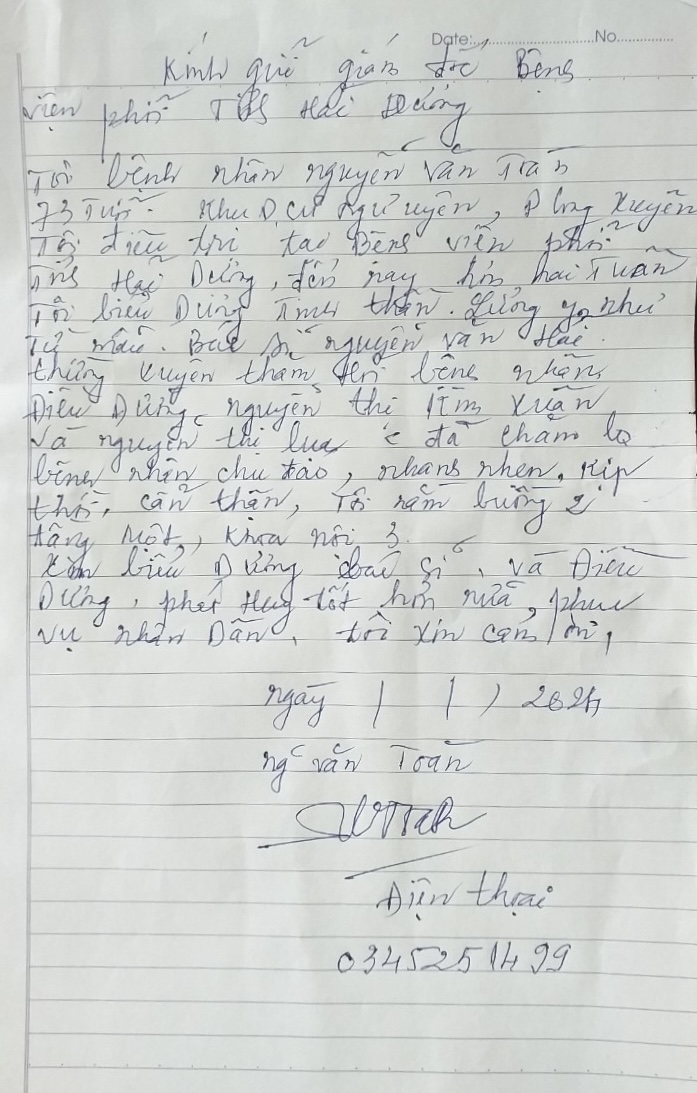 Date:........................No...............
Kính gửi giám đốc Bệng
viện phổi Tỉng Hải Dương
Tôi bệnh nhân nguyễn văn Toàn
73 Tuổi. Khu D cư Ngư uyên, P long Xuyên
Tôi điều trị tại Bệng viện phổi
Tỉng Hải Dương, đến nay hơn hai Tuần
Tôi biểu Dương Tinh thần. Lương y như
Từ mẫu. Bác sĩ nguyễn văn Hải
thường xuyên thăm hỏi bệng nhân
Điều Dưỡng nguyễn thị Kim Xuân
và nguyễn thị lụa đã chăm lo
bệnh nhân chu đáo, nhanh nhẹn, kịp
thời, cẩn thận, Tôi nằm buồng 2
tầng một, khoa nội 3.
Xin biểu Dương bác sĩ, và Điều
Dưỡng, phát Huy tốt hơn nữa, phục
vụ nhân Dân, tôi xin cảm ơn,
ngày / / ) 2024
ng văn Toàn
Điện thoại
0345251499